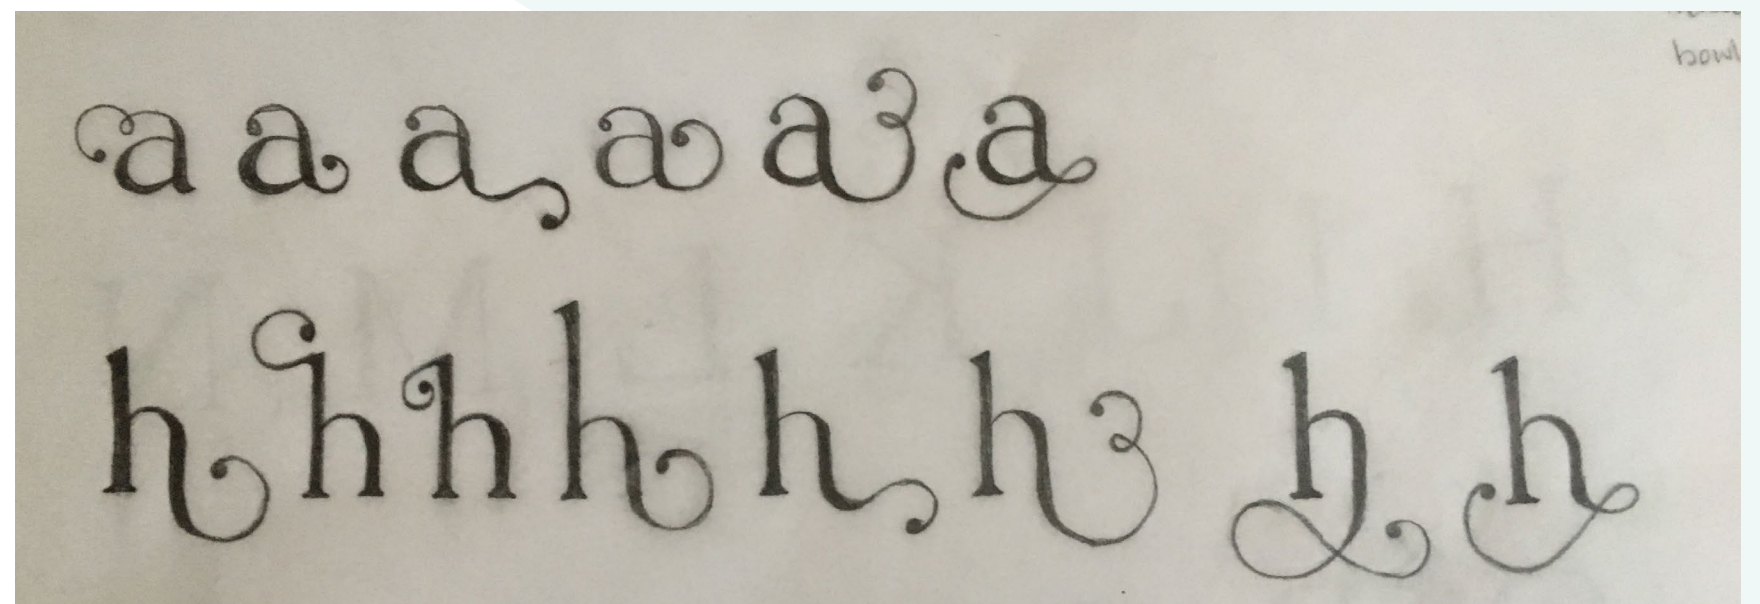 bowl
a a a a a a
h h h h h h h h